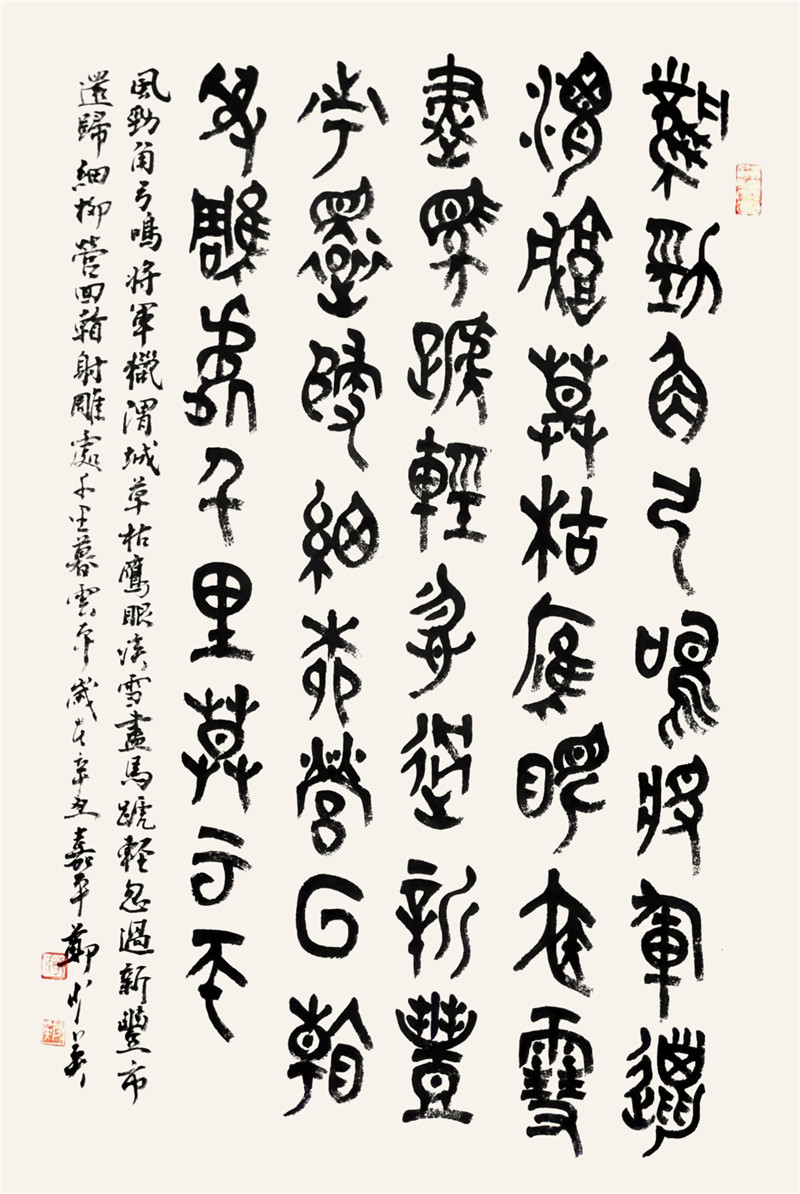 風勁角弓鳴將軍獵
渭城草枯鷹眼疾雪
盡馬蹏輕忽過新豐
市還歸細柳營回看
射雕處千里莫云平
風勁角弓鳴將軍獵渭城草枯鷹眼疾雪盡馬蹏輕忽過新豐市
還歸細柳營回看射雕處千里暮雲平歲在辛丑嘉平鄭